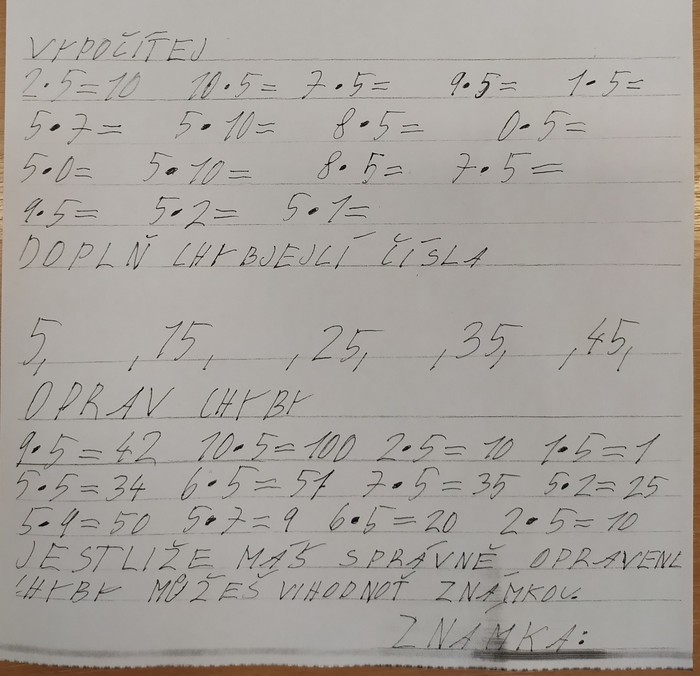 VYPOČÍTEJ
2·5=10 10·5= 7·5= 9·5= 1·5=
5·7= 5·10= 8·5= 0·5=
5·0= 5·10= 8·5= 7·5=
9·5= 5·2= 5·1=
DOPLŇ CHYBJEJCÍ ČÍSLA
5, ,15, ,25, ,35, ,45,
OPRAV CHYBY
9·5=42 10·5=100 2·5=10 1·5=1
5·5=34 6·5=51 7·5=35 5·2=25
5·9=50 5·7=9 6·5=20 2·5=10
JESTLIŽE MÁŠ SPRÁVNĚ OPRAVENL
CHYBY MŮŽEŠ VIHODNOŤ ZNÁMKOU.
ZNAMKA: